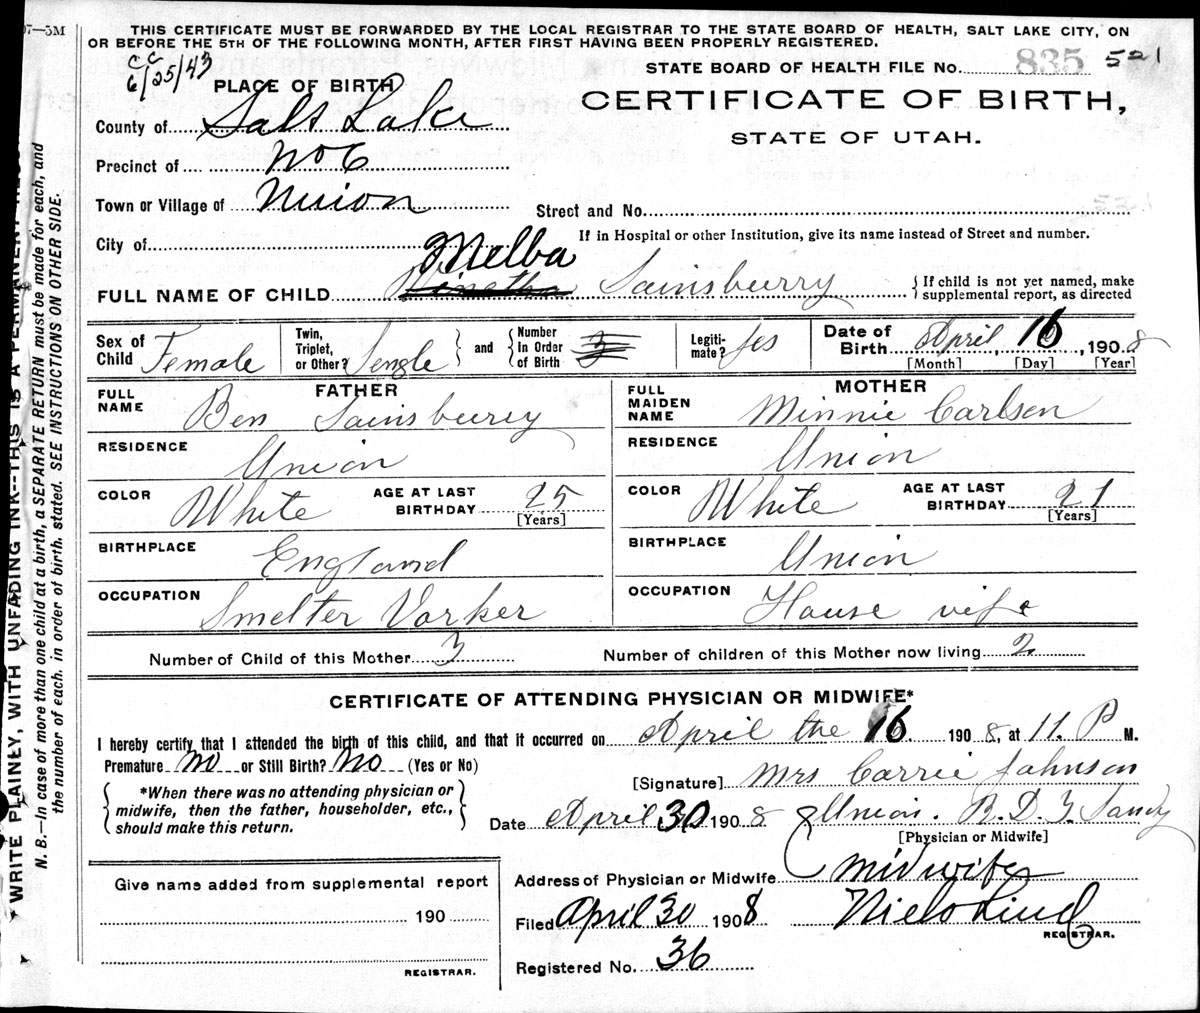 07—5M
THIS CERTIFICATE MUST BE FORWARDED BY THE LOCAL REGISTRAR TO THE STATE BOARD OF HEALTH, SALT LAKE CITY, ON
OR BEFORE THE 5TH OF THE FOLLOWING MONTH, AFTER FIRST HAVING BEEN PROPERLY REGISTERED.
CC
6/25/43
STATE BOARD OF HEALTH FILE No. 835 521
PLACE OF BIRTH
CERTIFICATE OF BIRTH,
STATE OF UTAH.
County of Salt Lake
Precinct of No 6
Town or Village of Union
Street and No.
City of
If in Hospital or other Institution, give its name instead of Street and number.
Melba
FULL NAME OF CHILD Sainsburry
{ If child is not yet named, make
supplemental report, as directed
Sex of Child Female
Twin, Triplet, or Other? Sengle } and { Number In Order of Birth 3
Legitimate? Yes
Date of Birth April, 16, 1908
[Month] [Day] [Year]
FATHER
FULL NAME Ben Sainsburry
RESIDENCE Union
COLOR White AGE AT LAST BIRTHDAY 25 [Years]
BIRTHPLACE England
OCCUPATION Smelter Vorker
MOTHER
FULL MAIDEN NAME Minnie Carlson
RESIDENCE Union
COLOR White AGE AT LAST BIRTHDAY 21 [Years]
BIRTHPLACE Union
OCCUPATION House vife
Number of Child of this Mother 3 Number of children of this Mother now living 2
CERTIFICATE OF ATTENDING PHYSICIAN OR MIDWIFE*
I hereby certify that I attended the birth of this child, and that it occurred on April the 16 1908, at 11. P M.
Premature No or Still Birth? No (Yes or No)
[Signature] Mrs Carrie Johnson
{ *When there was no attending physician or
midwife, then the father, householder, etc.,
should make this return. }
Date April 30 1908 Union. R.D.1. Sandy
[Physician or Midwife]
Address of Physician or Midwife Midwife
Filed April 30 1908 Niels Lind
REGISTRAR.
Registered No. 36
Give name added from supplemental report
190
REGISTRAR.
WRITE PLAINLY, WITH UNFADING INK—THIS IS A PERMANENT
N. B.—In case of more than one child at a birth, a SEPARATE RETURN must be made for each, and
the number of each, in order of birth, stated. SEE INSTRUCTIONS ON OTHER SIDE.